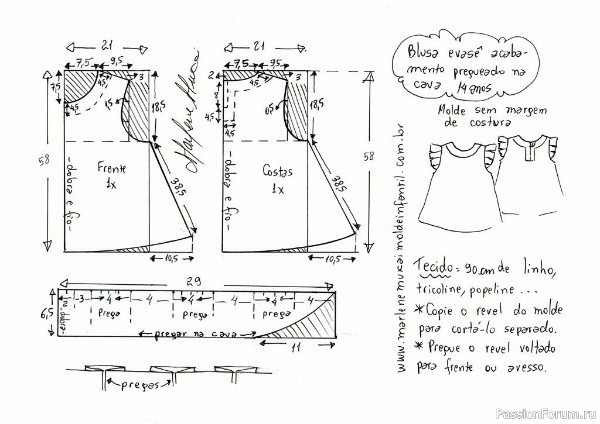 21
7,5 9,5
3
4,5
7,5
4,5
18,5
58
Frente
1x
dobra e fio
38,5
10,5
Marlene Mukai
21
7,5 9,5
2
3
4,5
8
4,5
4,5
18,5
58
Costas
1x
dobra e fio
38,5
10,5
29
6,5
dobra
3 4 4 4 4 4 4
Prega Prega Prega
pregar na cava
11
pregas
www.marlenemukaimoldeinfantil.com.br
Blusa evasê acaba-
mento pregueado na
cava 14 anos
Molde sem margem
de costura
Tecido: 90 cm de linho,
tricoline, popeline ...
*Copie o revel do molde
para cortá-lo separado.
*Pregue o revel voltado
para frente ou avesso.
PassionForum.ru